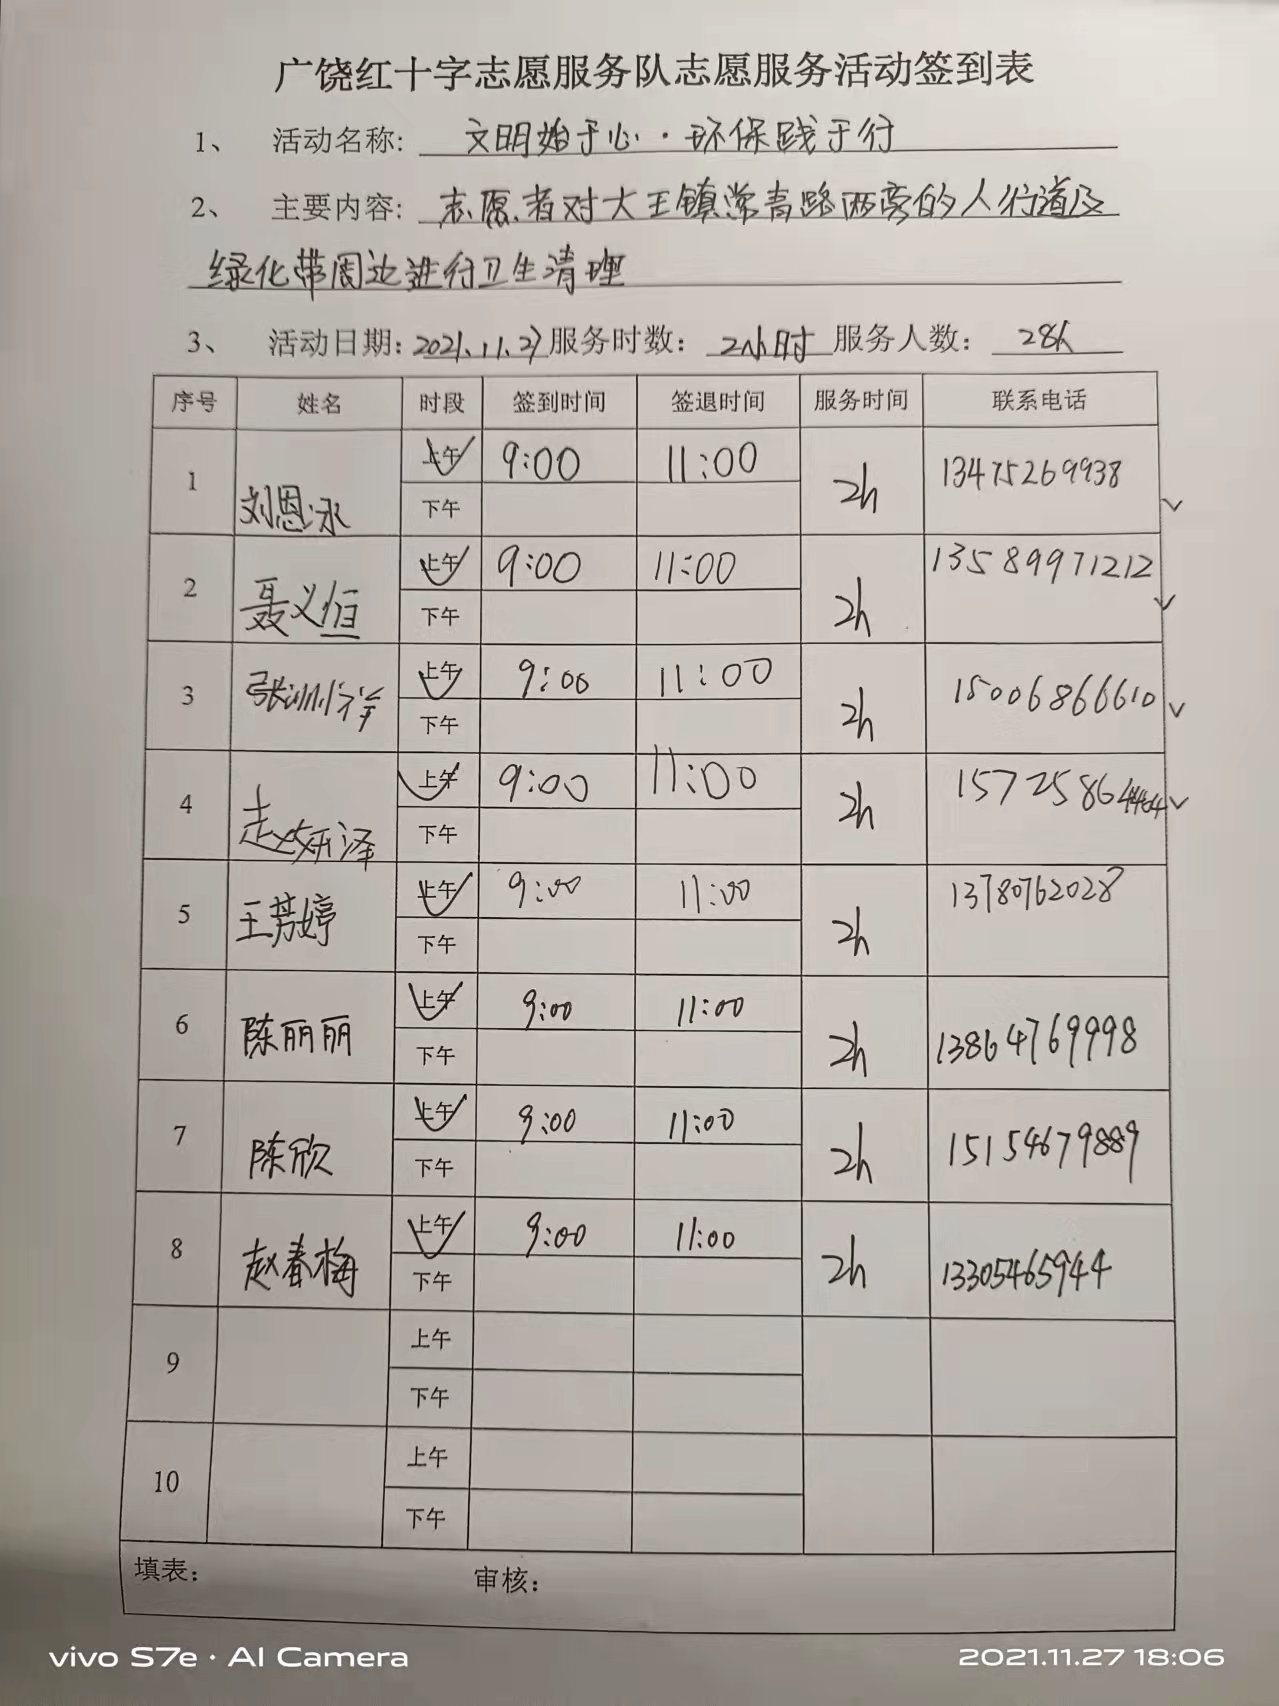 广饶红十字志愿服务队志愿服务活动签到表
1、 活动名称: 文明始于心·环保践于行
2、 主要内容: 志愿者对大王镇常青路两旁的人行道及
绿化带周边进行卫生清理
3、 活动日期: 2021.11.27 服务时数: 2小时 服务人数: 28人
序号 姓名 时段 签到时间 签退时间 服务时间 联系电话
1 刘恩泳 上午 9:00 11:00 2h 13475269938
下午
2 聂义恒 上午 9:00 11:00 2h 13589971212
下午
3 上午 9:00 11:00 2h 15006866610
下午
4 赵妍泽 上午 9:00 11:00 2h
下午
5 王芳婷 上午 9:00 11:00 2h 13780762028
下午
6 陈丽丽 上午 9:00 11:00 2h 13864769998
下午
7 陈欣 上午 9:00 11:00 2h 15154679889
下午
8 赵春梅 上午 9:00 11:00 2h 13305465944
下午
9 上午
下午
10 上午
下午
填表: 审核:
vivo S7e · AI Camera 2021.11.27 18:06